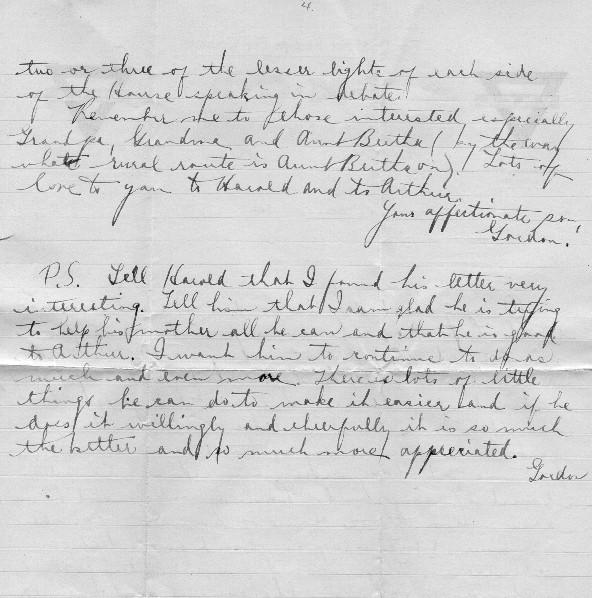 4.
two or three of the lesser lights of each side
of the House speaking in debate.
Remember me to those interested especially
Grandpa, Grandma and Aunt Bertha (by the way
what rural route is Aunt Bertha on). Lots of
love to you to Harold and to Arthur.
Your affectionate son,
Gordon.
P.S. Tell Harold that I found his letter very
interesting. Tell him that I am glad he is trying
to help his mother all he can and that he is good
to Arthur. I want him to continue to do as
much and even more. There is lots of little
things he can do to make it easier and if he
does it willingly and cheerfully it is so much
the better and so much more appreciated.
Gordon